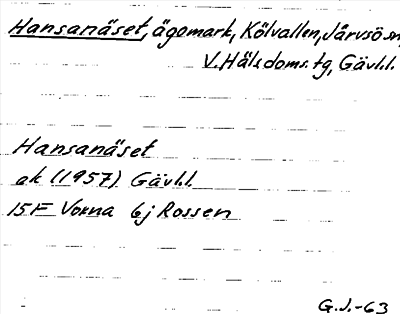 Hansanäset, ägomark, Kölvallen, Järvsö sn,
V. Häls. doms. tg, Gävl.l.
Hansanäset
ek (1957) Gävl.l.
15F Vorna 6j Rossen
G.J.-63